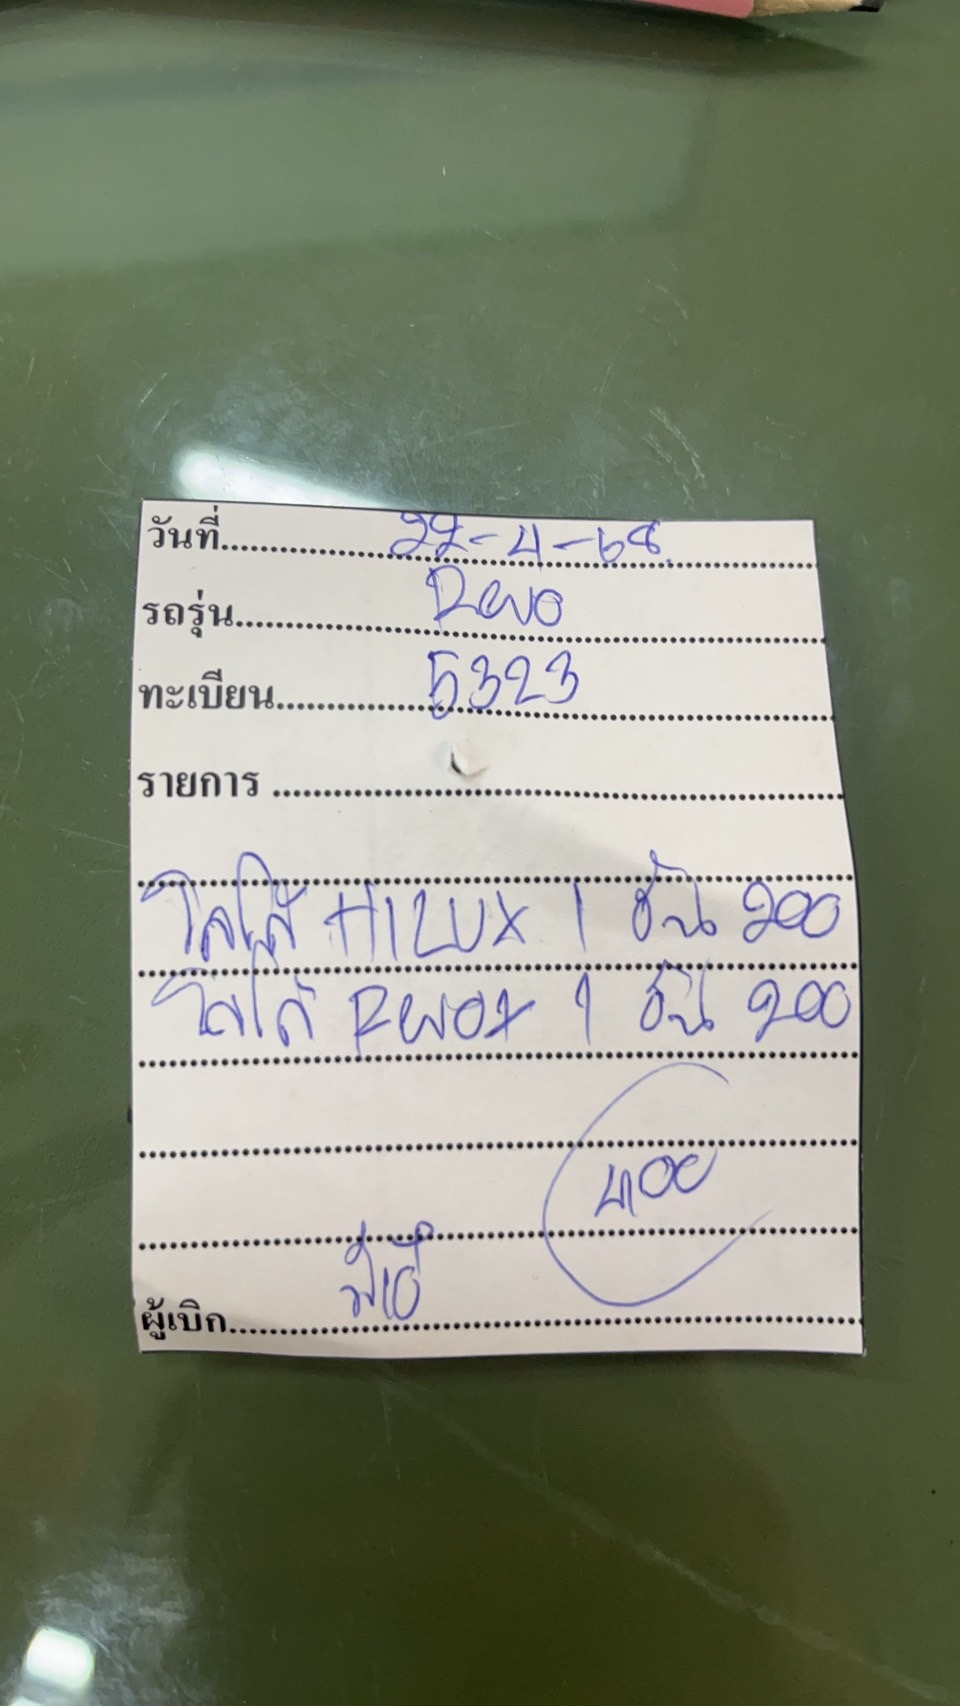 วันที่ 22-4-68
รถรุ่น Revo
ทะเบียน 5323
รายการ
โลโก้ HILUX 1 ชิ้น 200
โลโก้ Revo 1 ชิ้น 200
400
ผู้เบิก